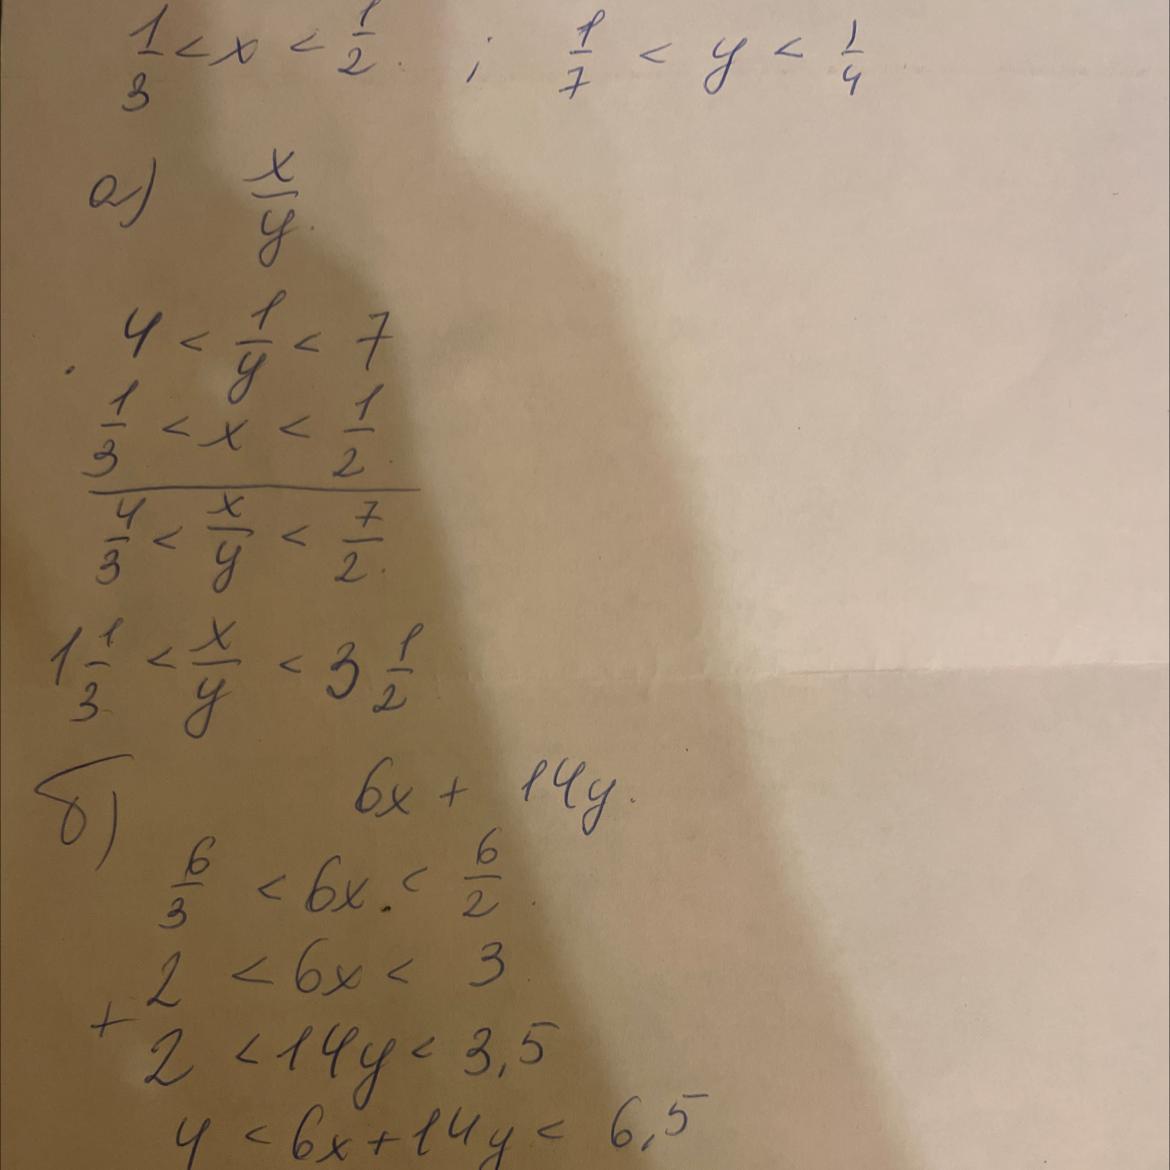 1/3 < x < 1/2 ; 1/7 < y < 1/4
а) x/y
4 < 1/y < 7
1/3 < x < 1/2
4/3 < x/y < 7/2
1 1/3 < x/y < 3 1/2
б) 6x + 14y
6/3 < 6x < 6/2
2 < 6x < 3
+
2 < 14y < 3,5
4 < 6x + 14y < 6,5